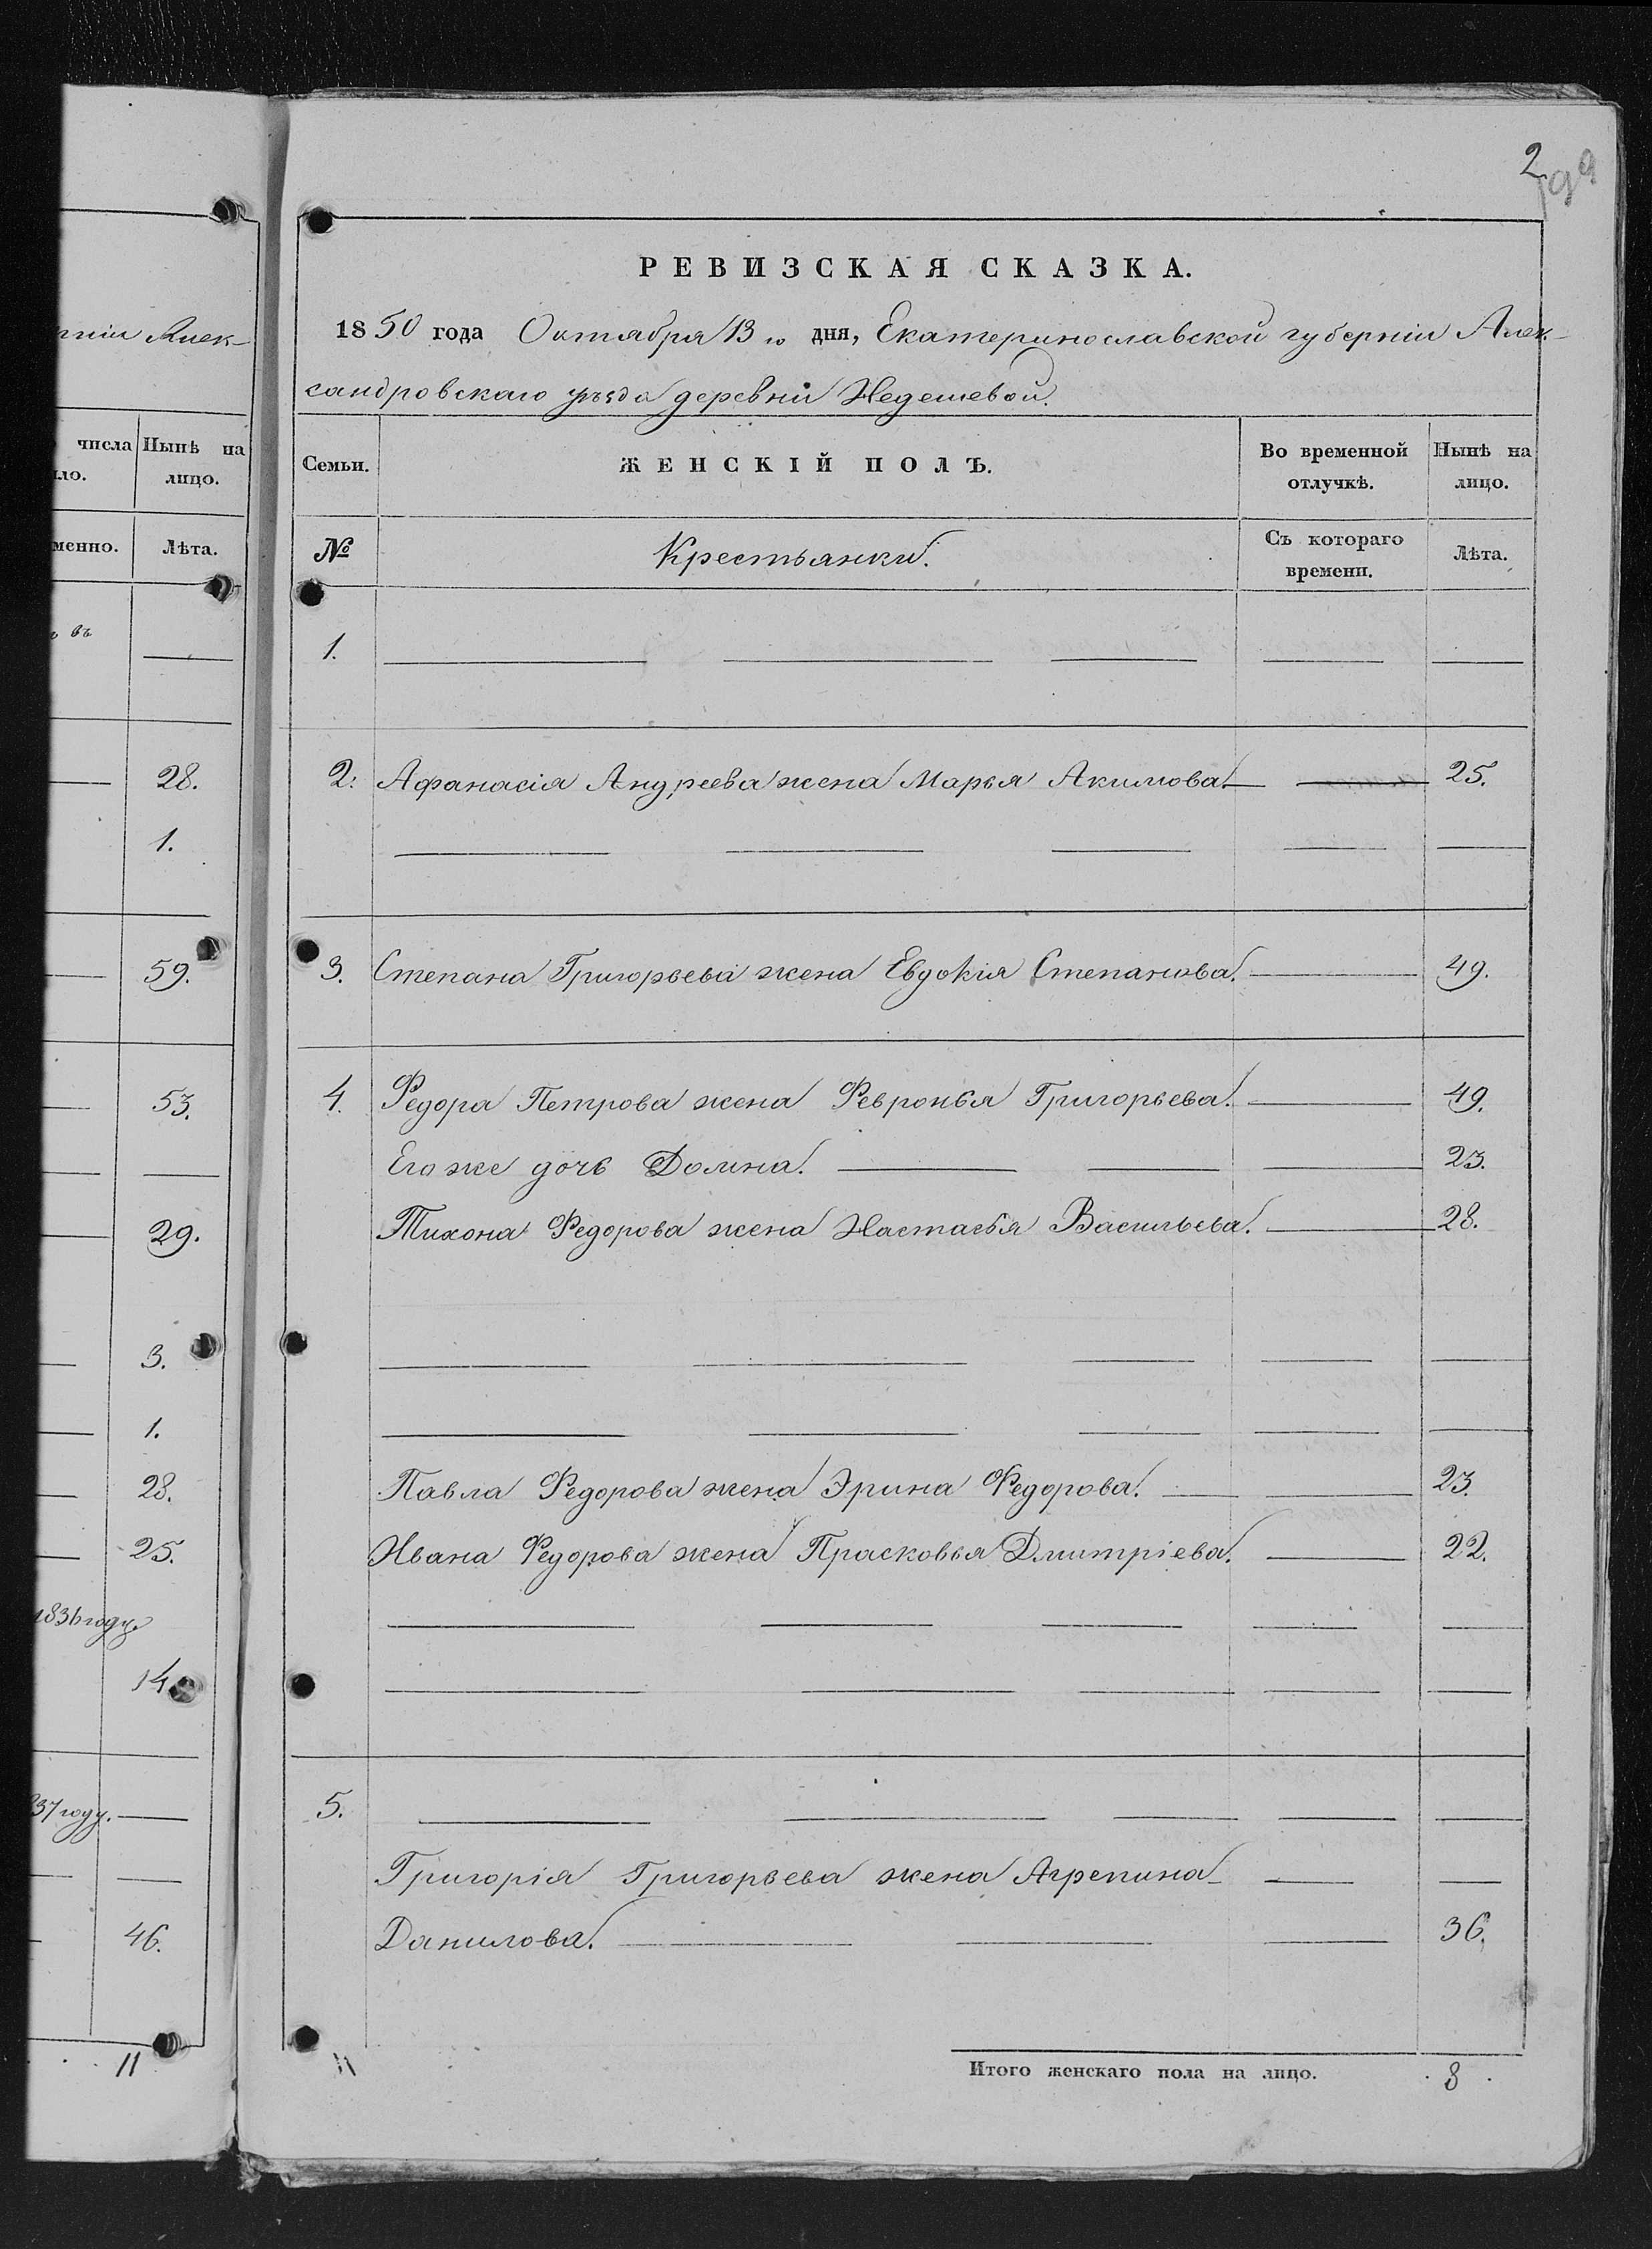 рніи Алек-
числа Нынѣ на
ло. лицо.
менно. Лѣта.
въ
28.
1.
59.
53.
29.
3.
1.
28.
25.
1836 году.
14
37 году.
46.
11
2
99
РЕВИЗСКАЯ СКАЗКА.
1850 года Октября 13 го дня, Екатеринославской губерніи Алек-
сандровскаго уѣзда деревни Недешевой.
Семьи. ЖЕНСКІЙ ПОЛЪ. Во временной отлучкѣ. Нынѣ на лицо.
№ Крестьянки. Съ котораго времени. Лѣта.
1.
2. Афанасія Андреева жена Марья Акимова. 25.
3. Степана Григорьева жена Евдокія Степанова. 49.
4. Федора Петрова жена Февронья Григорьева. 49.
Его же дочь Домна. 23.
Тихона Федорова жена Настасья Васильева. 28.
Павла Федорова жена Эрина Федорова. 23.
Ивана Федорова жена Прасковья Дмитріева. 22.
5.
Григорія Григорьева жена Агрепина
Данилова. 36.
11
Итого женскаго пола на лицо. 8